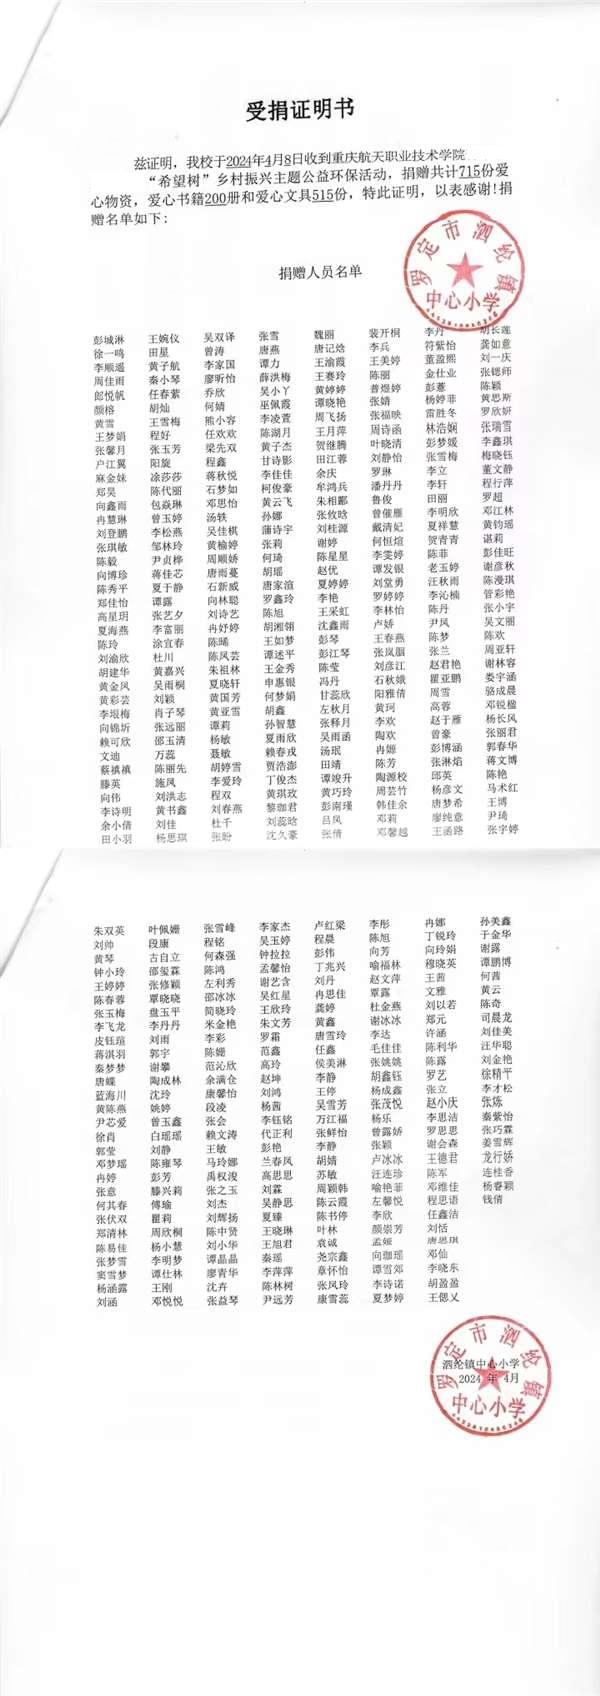 受捐证明书
兹证明，我校于2024年4月8日收到重庆航天职业技术学院
“希望树”乡村振兴主题公益环保活动，捐赠共计715份爱
心物资，爱心书籍200册和爱心文具515份，特此证明，以表感谢!捐
赠名单如下:
罗定市泗纶镇
中心小学
捐赠人员名单
彭城淋 王婉仪 吴双译 张雪 魏丽 裴开桐 李丹 胡长莲
徐一鸣 田星 曾涛 唐燕 唐记焓 李兵 符紫怡 龚如意
李顺遥 黄子航 李家国 谭力 王渝霞 王美婷 董盈熙 刘一庆
周佳雨 秦小琴 廖昕怡 薛洪梅 王赛玲 陈丽 金仕业 张锶师
郎悦帆 任春紫 乔欣 吴小丫 黄婷婷 普煜婷 彭薹 陈颖
颜榕 胡灿 何婧 巫佩霞 谭晓艳 张婧 杨婷菲 黄思斯
黄雪 王雪梅 熊小容 李凌萱 周飞扬 张福映 雷胜冬 罗欣妍
王梦娟 程好 任欢欢 陈湖月 王月萍 周诗函 林浩娴 张瑞雪
张馨月 张玉芳 梁先双 黄子杰 贺继腾 叶晓清 彭梦媛 李鑫琪
户江翼 阳旋 程鑫 甘诗影 田江蓉 刘静怡 张雪梅 梅晓钰
麻金妹 凃莎莎 蒋秋悦 李佳佳 余庆 罗琳 李立 董文静
郑昊 陈代丽 石梦如 柯俊豪 牟鸿兵 潘丹丹 李轩 程行萍
向鑫雨 包焱琳 邓思怡 黄云飞 朱相郦 鲁俊 田丽 罗超
冉慧琳 曾玉婷 汤轶 孙娜 张攸晗 曾催雁 李明欣 邓江林
刘登鹏 李松燕 吴佳棋 蒲诗宇 刘桂源 戴清妃 夏祥慧 黄钧瑶
张琪敏 邹林玲 黄榆婷 张莉 谢婷 何恒煊 贺青青 谌莉
陈毅 尹贞桦 周顺娇 何琦 陈星星 李雯婷 陈菲 彭佳旺
向博珍 蒋佳芯 唐雨蔓 胡瑶 赵优 谭发银 老玉婷 谢彦秋
陈秀平 夏于静 石新威 唐家渲 夏婷婷 刘堂勇 汪秋雨 陈漫琪
郑佳怡 谭露 向林聪 罗鑫玲 李艳 罗婷婷 李沁楠 管彩艳
高星玥 张艺夕 刘诗艺 陈旭 王采虹 李林怡 陈丹 张小宇
夏海燕 李富丽 冉妤婷 胡湘翎 沈鑫雨 卢娇 尹凤 吴文丽
陈玲 涂宜春 陈晞 王如梦 彭琴 王春燕 陈梦 陈欢
刘渝欣 杜川 陈凤芸 谭述平 彭江琴 张岚胭 张兰 周亚轩
胡建华 黄嘉兴 朱祖林 王金秀 陈莹 刘彦江 赵君艳 谢林容
黄金凤 吴雨桐 夏晓轩 申惠银 冯丹 石秋娥 瞿亚鹏 娄宇涵
黄彩芸 刘颖 黄国芳 何梦娟 甘蕊欣 阳雅倩 周雪 骆成晨
李垠梅 肖子琴 黄亚雪 胡鑫 左秋月 黄珂 高蓉 邓锐楹
向锦圻 张远丽 谭莉 孙智慧 张释月 李欢 赵于雁 杨长风
赖可欣 邵玉清 杨敏 夏雨欣 吴雨函 陶欢 曾豪 张丽君
文迪 万蕊 聂敏 赖春戎 汤珉 冉嫄 彭博涵 郭春华
蔡禛禛 陈丽先 胡婷雪 贾浩澎 田靖 陈芳 张淋焰 蒋文博
滕英 施凤 李爱玲 丁俊杰 谭竣升 陶源校 邱英 陈艳
向伟 刘洪志 程双 黄琪玫 黄巧玲 周芸竹 杨彦文 马术红
李诗明 黄书鑫 刘春燕 黎咖君 彭南瑾 韩佳余 唐梦希 王博
余小倩 刘佳 杜千 刘蕊晗 吕凤 邓莉 廖纯意 尹琦
田小羽 杨思琪 张盼 沈久豪 张倩 邓馨越 王函路 张字婷
朱双英 叶佩姗 张雪峰 李家杰 卢红梁 李彤 冉娜 孙美鑫
刘帅 段康 程铭 吴玉婷 程晨 陈旭 丁锐玲 于金华
黄琴 古自立 何森强 钟拉拉 彭伟 向芳 向玲娟 谢露
钟小玲 邵玺霖 陈鸿 孟馨怡 丁兆兴 喻福林 穆晓英 谭鹏博
王婷婷 张修颖 左利秀 谢艺含 刘丹 赵文萍 王茜 何茜
陈春蓉 覃晓晓 邵冰冰 吴红星 冉思佳 覃露 文雅 黄云
张玉梅 盘玉平 简晓玲 王欣玲 龚婷 杜金燕 刘以若 陈奇
李飞龙 李丹丹 米金艳 朱文芳 黄鑫 谢冰冰 郑元 司晨龙
皮钰瑄 刘雨 李彩 罗霜 唐雪玲 李达 许涵 刘佳美
蒋淇羽 郭宇 陈姗 范鑫 任鑫 毛佳佳 陈利华 汪华聪
秦梦梦 谢攀 范沁欣 高玲 侯美淋 张姚姚 陈露 刘金艳
唐蝶 陶成林 余满仓 赵坤 李静 胡鑫钰 罗艺 徐精平
蓝海川 沈玲 康馨怡 刘鸿 王停 杨成鑫 张立 李才松
黄陈燕 姚婷 段凌 杨茜 吴雪芳 张茂悦 赵小庆 张炼
尹芯爱 曾玉鑫 张会 李钰铭 万江福 杨乐 李思洁 秦紫怡
徐肖 白瑶瑶 赖文涛 代正利 张鲜怡 曾露娇 罗思思 张巧霖
郭莹 刘静 王敏 彭艳 李静 张颖 谢会森 姜雪辉
邓梦瑶 陈雍琴 马玲娜 兰春凤 胡婧 卢冰冰 王德君 龙行娇
冉婷 彭芳 禹权浚 高思思 苏敏 汪连珍 陈军 连桂香
张意 滕兴莉 张之玉 刘霖 周颖韩 喻艳菲 邓维佳 杨睿颖
何其春 傅瑜 刘杰 吴静思 陈云霞 左馨悦 程思语 钱倩
张伏双 瞿莉 刘辉扬 夏臻 陈书停 李欣 任鑫洁
郑清林 周欣桐 陈中贤 王晓琳 叶林 颜崇芳 刘恬
陈易佳 杨小慧 刘小华 王旭君 袁诚 孟娅 唐思琪
张梦雪 李明梦 谭晶晶 秦瑶 尧宗鑫 向咖瑶 邓仙
窦雪梦 谭仕林 廖青华 李萍萍 章怀怡 谭雪郊 李晓东
杨涵露 王刚 沈卉 陈林树 张凤玲 李诗诺 胡盈盈
刘涵 邓悦悦 张益琴 尹远芳 康雪蕊 夏梦婷 王偲乂
罗定市泗纶镇
泗纶镇中心小学
2024 年 4月
中心小学